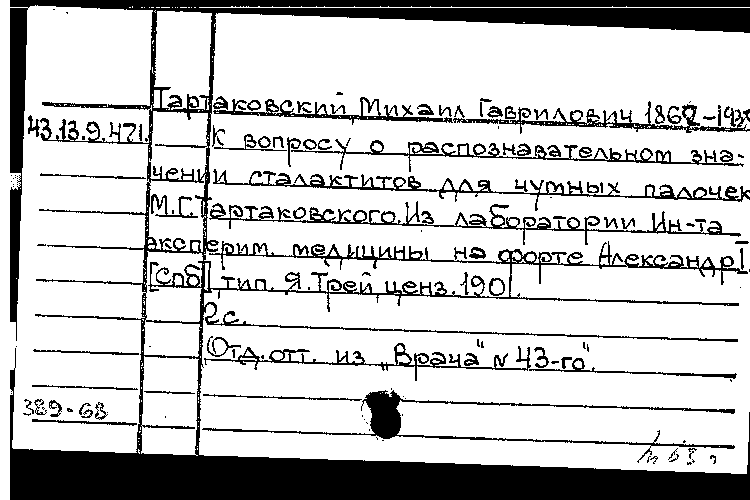 Тартаковский, Михаил Гаврилович, 1867-193
43.13.9.471.
К вопросу о распознавательном зна-
чении сталактитов для чумных палочек
М.Г.Тартаковского. Из лаборатории Ин-та
эксперим. медицины на форте Александр I.
[Спб], тип. Я.Трей, ценз. 1901.
2 с.
Отд. отт. из „Врача" № 43-го".
389-68